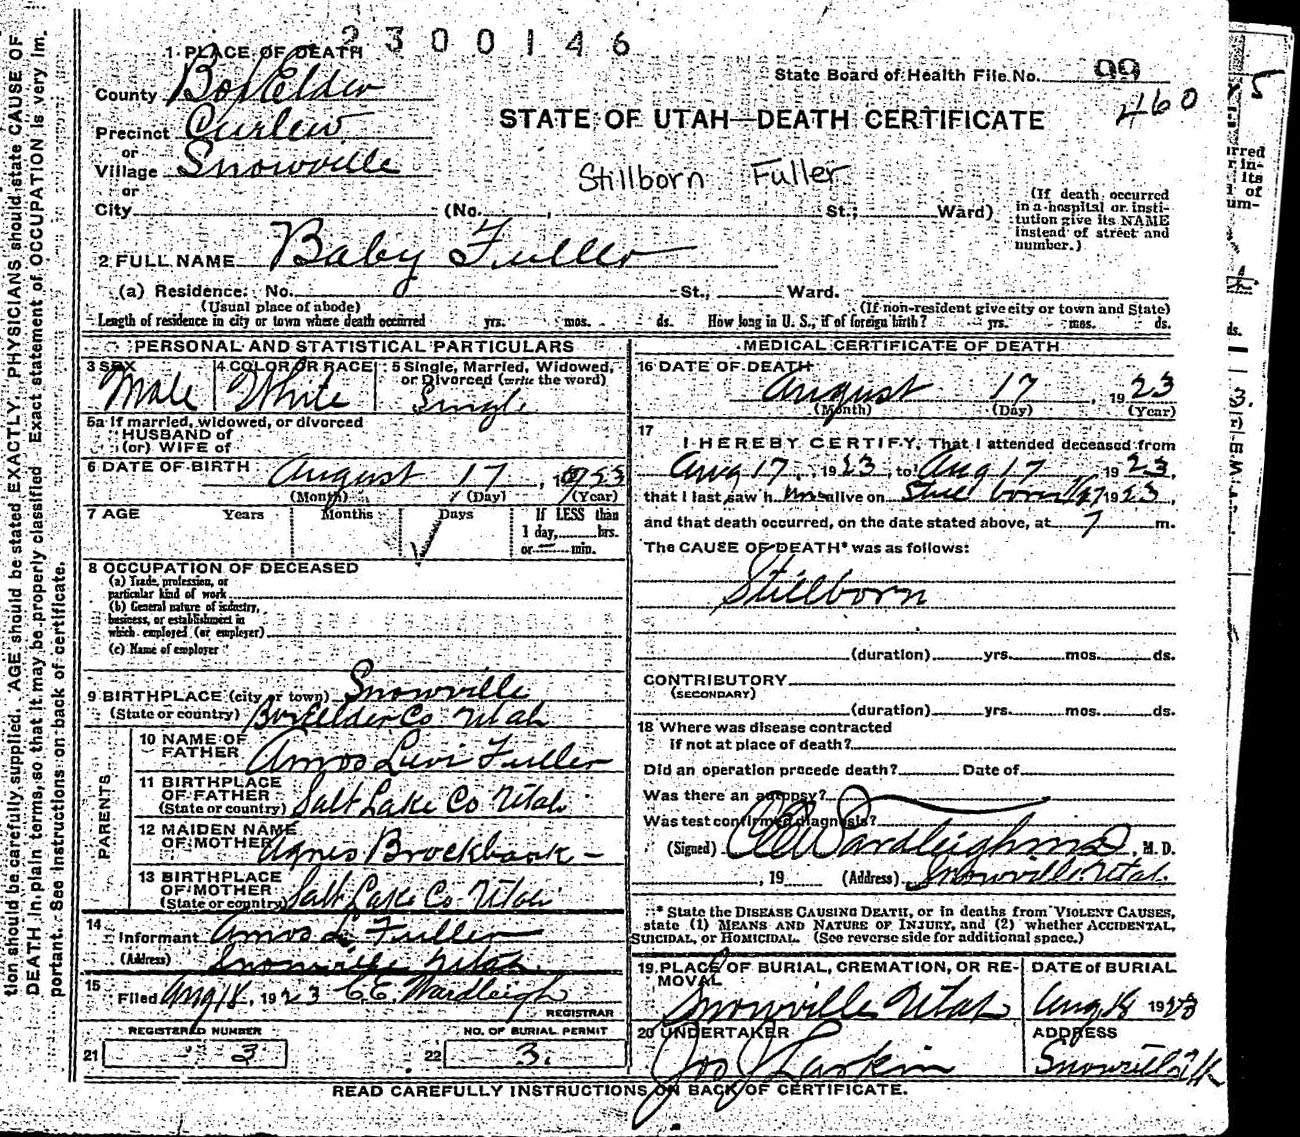 2300146
1 PLACE OF DEATH
State Board of Health File No. 99
460
County Box Elder
STATE OF UTAH—DEATH CERTIFICATE
Precinct Curlew
or
Village Snowville
Stillborn Fuller
or
City (No. , St.; Ward)
(If death occurred in a hospital or institution give its NAME instead of street and number.)
2 FULL NAME Baby Fuller
(a) Residence: No. St., Ward.
(Usual place of abode) (If non-resident give city or town and State)
Length of residence in city or town where death occurred yrs. mos. ds. How long in U. S., if of foreign birth? yrs. mos. ds.
PERSONAL AND STATISTICAL PARTICULARS
3 SEX Male
4 COLOR OR RACE White
5 Single, Married, Widowed, or Divorced (write the word) Single
5a If married, widowed, or divorced
HUSBAND of
(or) WIFE of
6 DATE OF BIRTH August 17, 1923
(Month) (Day) (Year)
7 AGE Years Months Days If LESS than
1 day, hrs.
or min.
8 OCCUPATION OF DECEASED
(a) Trade, profession, or
particular kind of work
(b) General nature of industry,
business, or establishment in
which employed (or employer)
(c) Name of employer
9 BIRTHPLACE (city or town) Snowville
(State or country) Box Elder Co Utah
PARENTS
10 NAME OF FATHER Amos Levi Fuller
11 BIRTHPLACE OF FATHER
(State or country) Salt Lake Co Utah
12 MAIDEN NAME OF MOTHER Agnes Brockbank
13 BIRTHPLACE OF MOTHER
(State or country) Salt Lake Co Utah
14
Informant Amos L. Fuller
(Address) Snowville Utah.
15
Filed Aug 18, 1923 C.E. Wardleigh
REGISTRAR
REGISTERED NUMBER
21 3
NO. OF BURIAL PERMIT
22 3.
MEDICAL CERTIFICATE OF DEATH
16 DATE OF DEATH
August 17, 1923
(Month) (Day) (Year)
17
I HEREBY CERTIFY, That I attended deceased from
Aug 17, 1923, to Aug 17 1923,
that I last saw him alive on Still born 1923,
and that death occurred, on the date stated above, at 7 m.
The CAUSE OF DEATH* was as follows:
Stillborn
(duration) yrs. mos. ds.
CONTRIBUTORY
(SECONDARY)
(duration) yrs. mos. ds.
18 Where was disease contracted
if not at place of death?
Did an operation precede death? Date of
Was there an autopsy?
Was test confirmed diagnosis?
(Signed) C E Wardleigh MD, M. D.
, 19 (Address) Snowville Utah.
* State the DISEASE CAUSING DEATH, or in deaths from VIOLENT CAUSES,
state (1) MEANS AND NATURE OF INJURY, and (2) whether ACCIDENTAL,
SUICIDAL, or HOMICIDAL. (See reverse side for additional space.)
19 PLACE OF BURIAL, CREMATION, OR REMOVAL
Snowville Utah
DATE of BURIAL
Aug 18 1923
20 UNDERTAKER
Jos Larkin
ADDRESS
Snowville
READ CAREFULLY INSTRUCTIONS ON BACK OF CERTIFICATE.
tion should be carefully supplied. AGE should be stated EXACTLY. PHYSICIANS should state CAUSE OF
DEATH in plain terms, so that it may be properly classified. Exact statement of OCCUPATION is very im-
portant. See instructions on back of certificate.